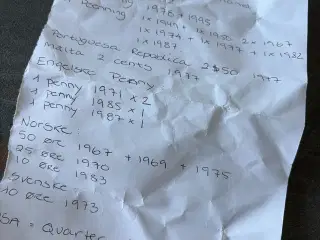 1976 + 1995
Pfenning
1x1949 + 1x1950 2x1967
1x1974 + 1x1977 + 1x1982
1x1987
Portuguesa Republica 2$50 1977
Malta 2 cents 1977
Engelske Penny
1 penny 1971 x 2
1 penny 1985 x 1
1 penny 1987 x 1
Norske
50 øre 1967 + 1969 + 1975
25 øre 1970
10 øre 1983
Svenske
10 øre 1973
USA = Quarter